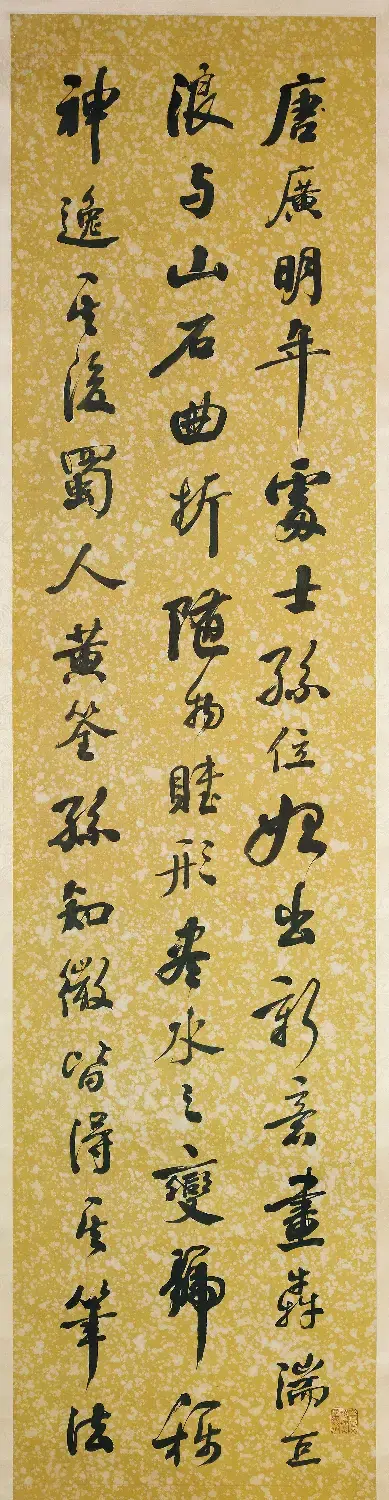 唐廣明年處士孫位始出新意畫奔湍巨
浪与山石曲折隨物賦形盡水之變號稱
神逸其後蜀人黄筌孫知微皆得其筆法